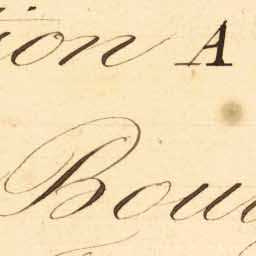 tion A
Bou